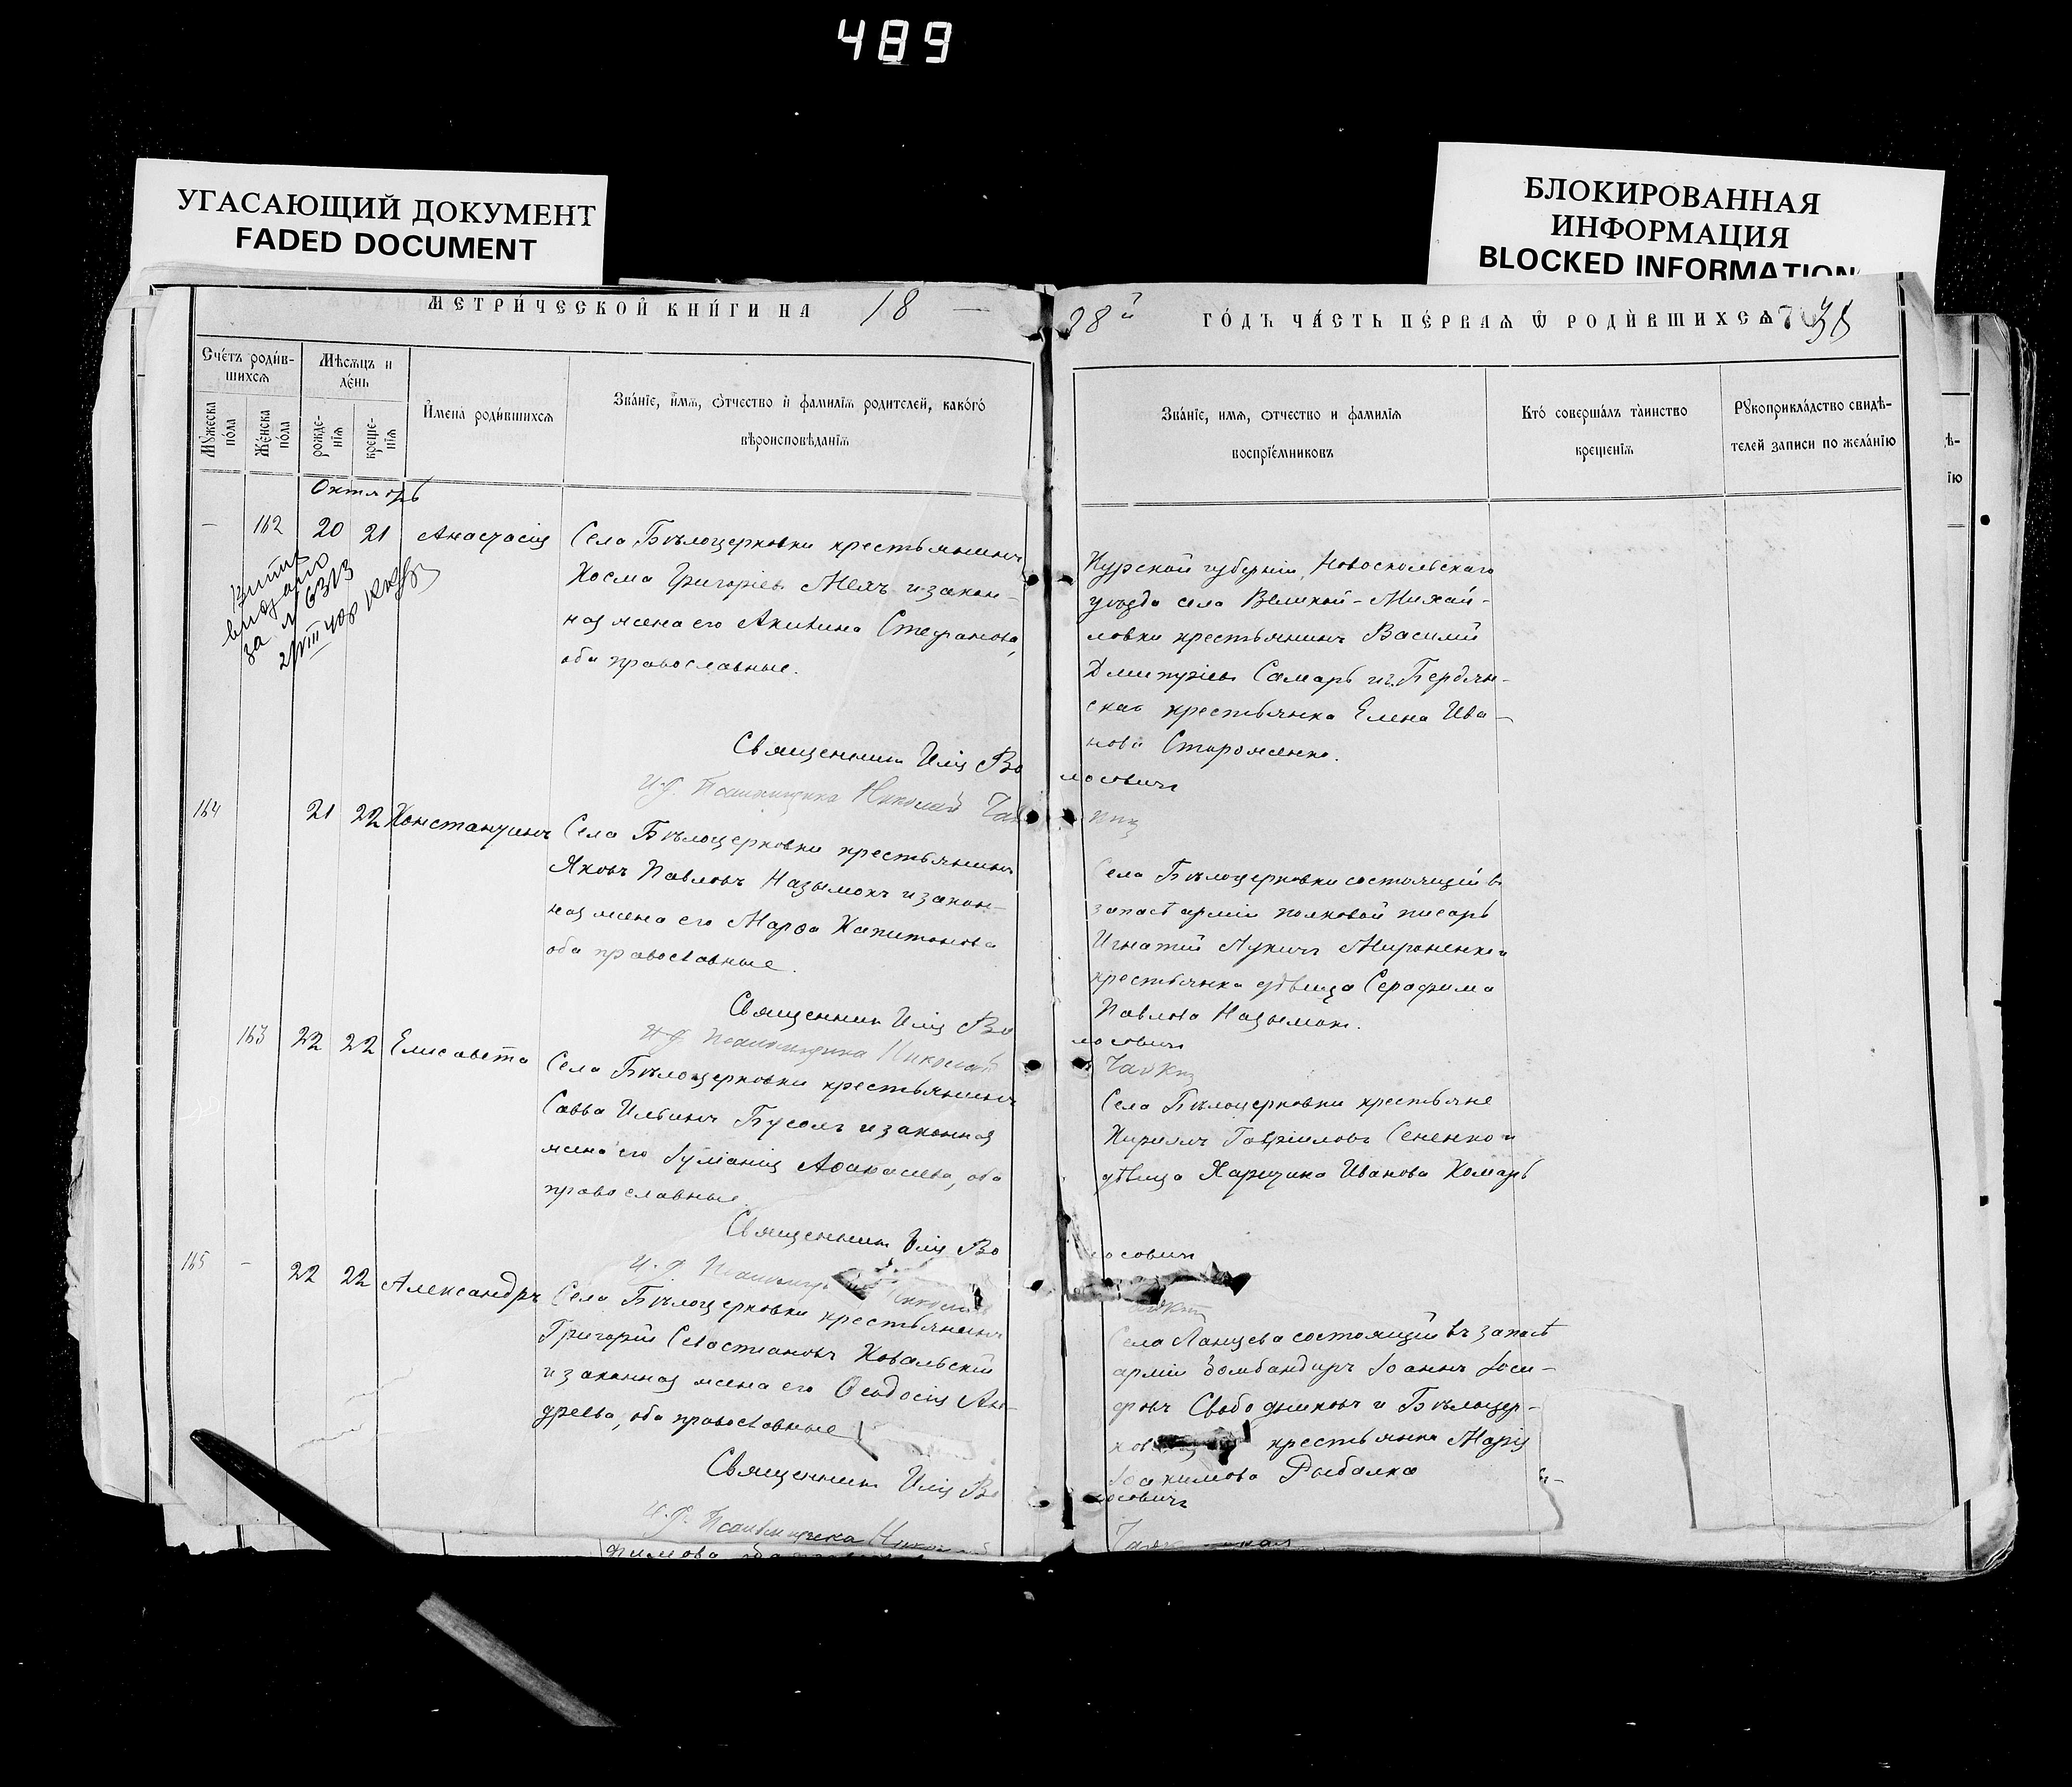 489
УГАСАЮЩИЙ ДОКУМЕНТ
FADED DOCUMENT
БЛОКИРОВАННАЯ
ИНФОРМАЦИЯ
BLOCKED INFORMATION
МЕТРИ́ЧЕСКОЙ КНИ́ГИ НА 18
98й ГО́ДЪ ЧА́СТЬ ПЕ́РВАЯ Ѡ РОДИ́ВШИХСЯ
Сче́тъ роди́в-
шихся
Мѣсяцъ и
де́нь
Му́жеска
по́ла
Же́нска
по́ла
рожде-
нія
креще-
нія
И҆мена̀ роди́вшихся
Зва́ніе, и҆́мя, ѻ҆́тчество и҆ фами́лія роди́телей, како́го́
вѣроисповѣ́данія
Зва́ніе, имя, ѻтчество и фамилія
воспріе́мниковъ
Кто̀ соверша́лъ та̀инство
креще́нія
Рꙋкоприкла́дство свидѣ-
телей записи по жела́нію
Октябрь
162 20 21 Анастасія
Села Бѣлоцерковки крестьянинъ
Косма Григоріевъ Мехъ и закон-
ная жена его Акилина Стефанова,
оба православные.
Курской губерніи, Новоскольскаго
уѣзда села Великой-Михай-
ловки крестьянинъ Василій
Дмитріевъ Самарь и г. Бердян-
ска крестьянка Елена Ива-
нова Староженко.
Священникъ Илія Во
лосовичъ
и. д. Псаломщика Николай
164 21 22 Константинъ
Села Бѣлоцерковки крестьянинъ
Яковъ Павловъ Назымокъ и закон-
ная жена его Марфа Капитонова
оба православные.
Села Бѣлоцерковки состоящій въ
запасѣ арміи полковой писарь
Игнатій Лукичъ Мироненко и
крестьянка дѣвица Серафима
Павлова Назымокъ.
Священникъ Илія Во
лосовичъ
и. д. Псаломщика Николай
163 22 22 Елисавета
Села Бѣлоцерковки крестьянинъ
Савва Ильинъ Бусолъ и законная
жена его Іуліанія Аѳанасіева, оба
православные.
Села Бѣлоцерковки крестьяне
Кириллъ Гавріиловъ Сененко и
дѣвица Харитина Иванова Комарь
Священникъ Илія Во
лосовичъ
165 22 22 Александръ
Села Бѣлоцерковки крестьянинъ
Григорій Севастіановъ Ковальскій
и законная жена его Ѳеодосія Ан-
дреева, оба православные
Села Ланцева состоящій въ запасѣ
арміи бомбандиръ Іоаннъ Іоси-
фовъ Свободниковъ и Бѣлоцер-
крестьянка Марія
Іоакимова Рыбалка
Священникъ Илія Во
лосовичъ
и. д. Псаломщика